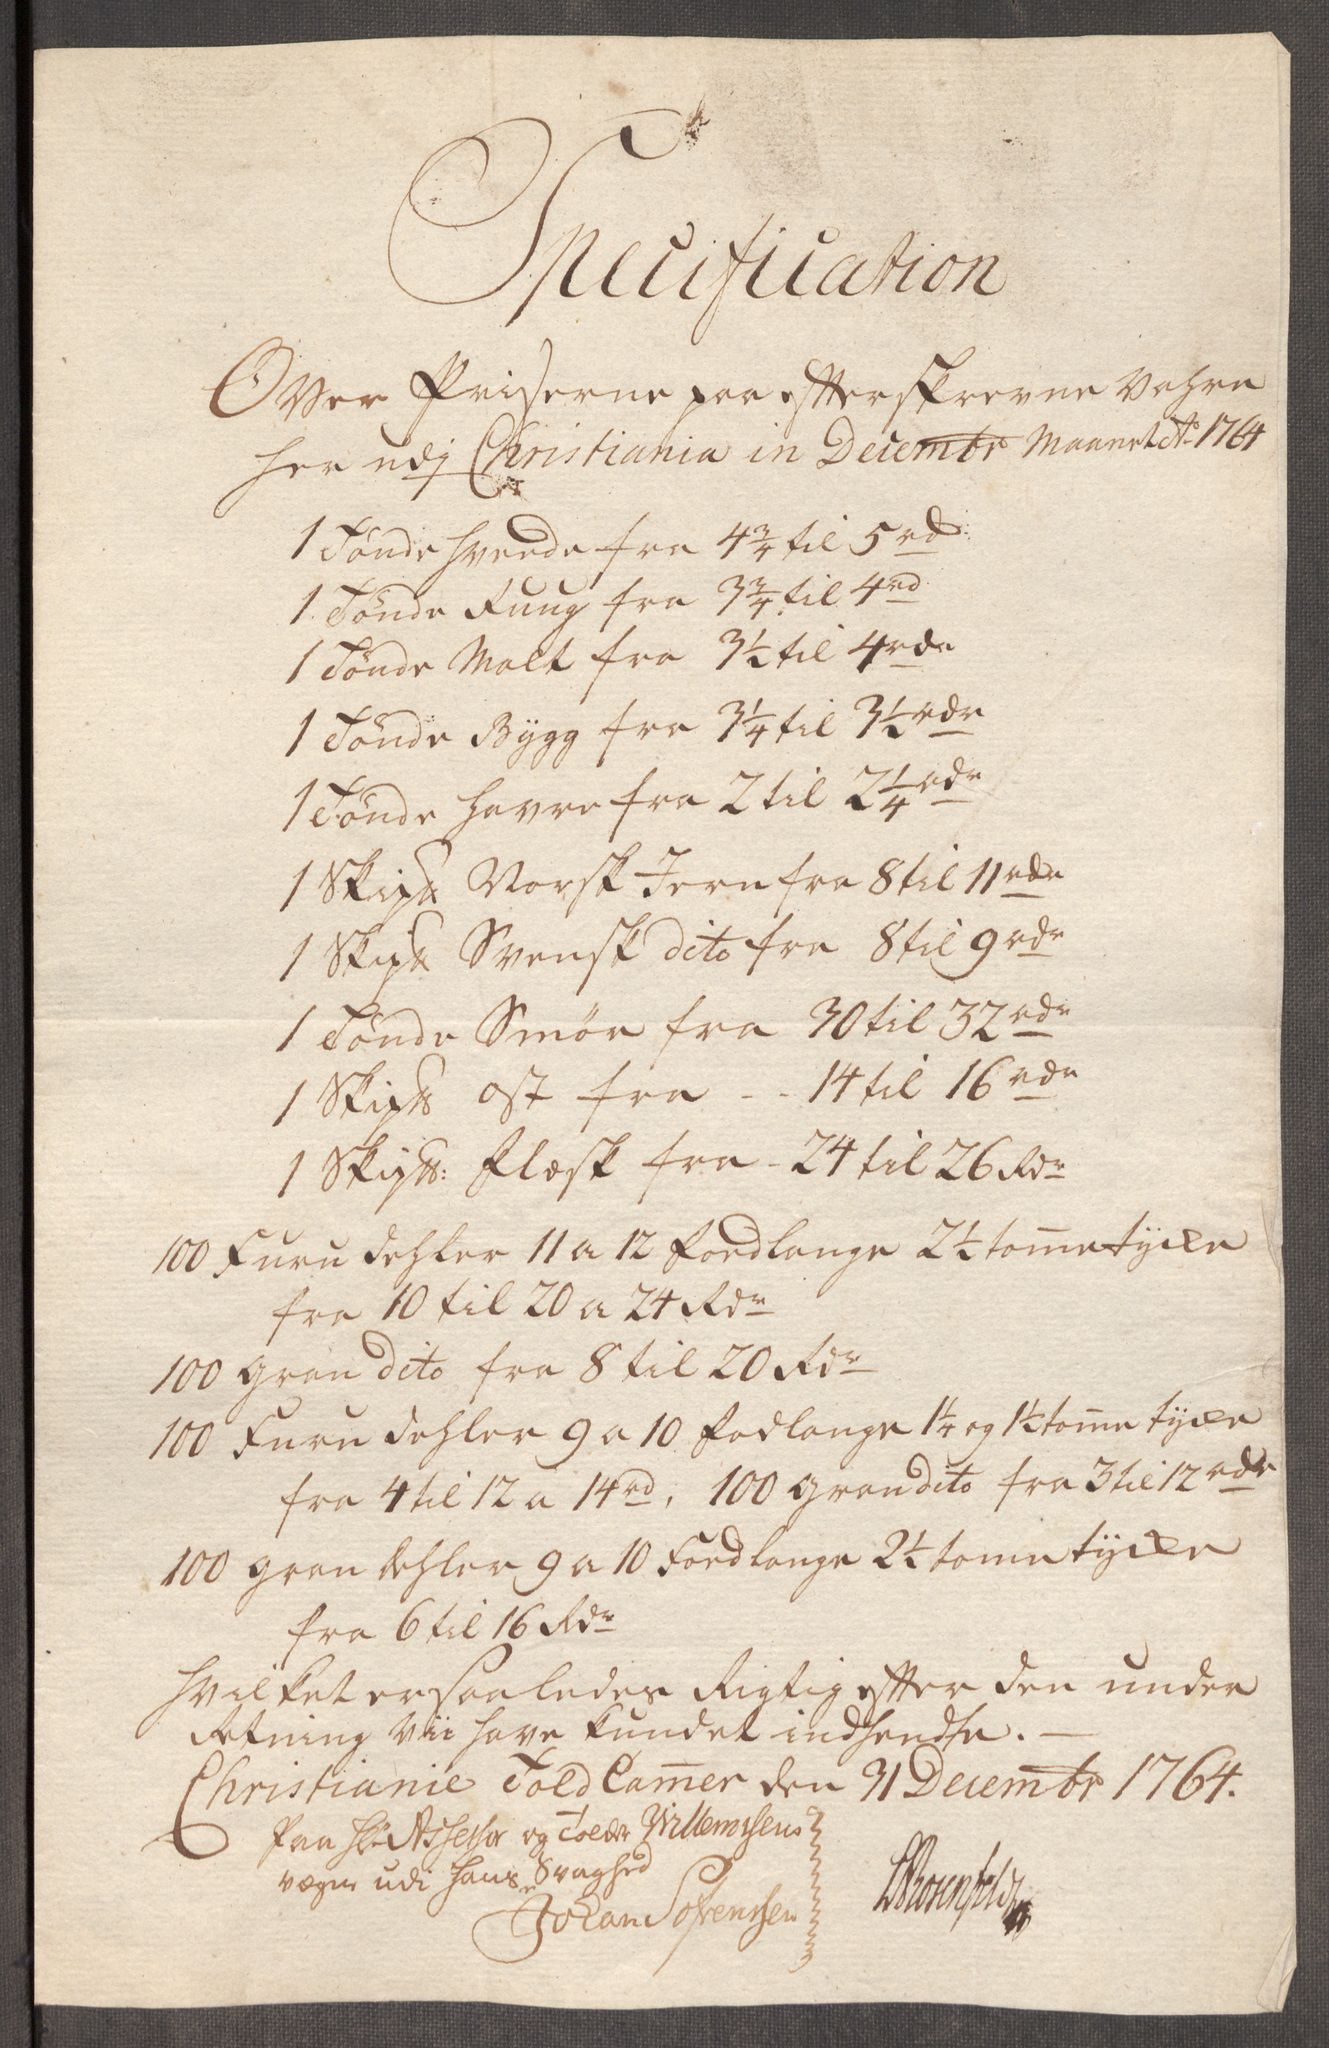 Specification
Over Priserne paa efterskrevne Vahre
her udj Christiania in Decembr Maanet Ao 1764
1 Tönde hveede fra 4 3/4 til 5 rd:
1 Tönde Ruug fra 3 3/4 til 4 rd
1 Tönde Malt fra 3 1/2 til 4 rdr
1 Tönde Bÿgg fra 3 1/4 til 3 1/2 rdr
1 Tönde havre fra 2 til 2 1/4 rdr
1 Skip℔ Norsk Jern fra 8 til 11 rdr
1 Skip℔ Svensk dito fra 8 til 9 rdr
1 Tönde Smör fra 30 til 32 rdr
1 Skip℔ ost fra - - 14 til 16 rdr
1 Skip℔: flæsk fra - 24 til 26 Rdr
100 Furu dehler 11 a 12 foed lange 2 1/2 tom̄e tÿcke
fra 10 til 20 a 24 Rdr
100 gran dito fra 8 til 20 Rdr
100 Furu dehler 9 a 10 fodlange 1 1/4 og 1 1/2 tom̄e tÿcke
fra 4 til 12 a 14 rd, 100 gran dito fra 3 til 12 rdr
100 gran dehler 9 a 10 Foed lange 2 1/2 tome tÿcke
fra 6 til 16 Rdr
hvilket er saaledes Rigtig efter den under
retning vii have kundet indhendte. —
Christianie Told Cam̄er den 31 Decembr 1764.
Paa Hr Assessor og Tolder Willemsens
vegne udi hans Svaghed
Johan Sörenssen
Rosenfeldt